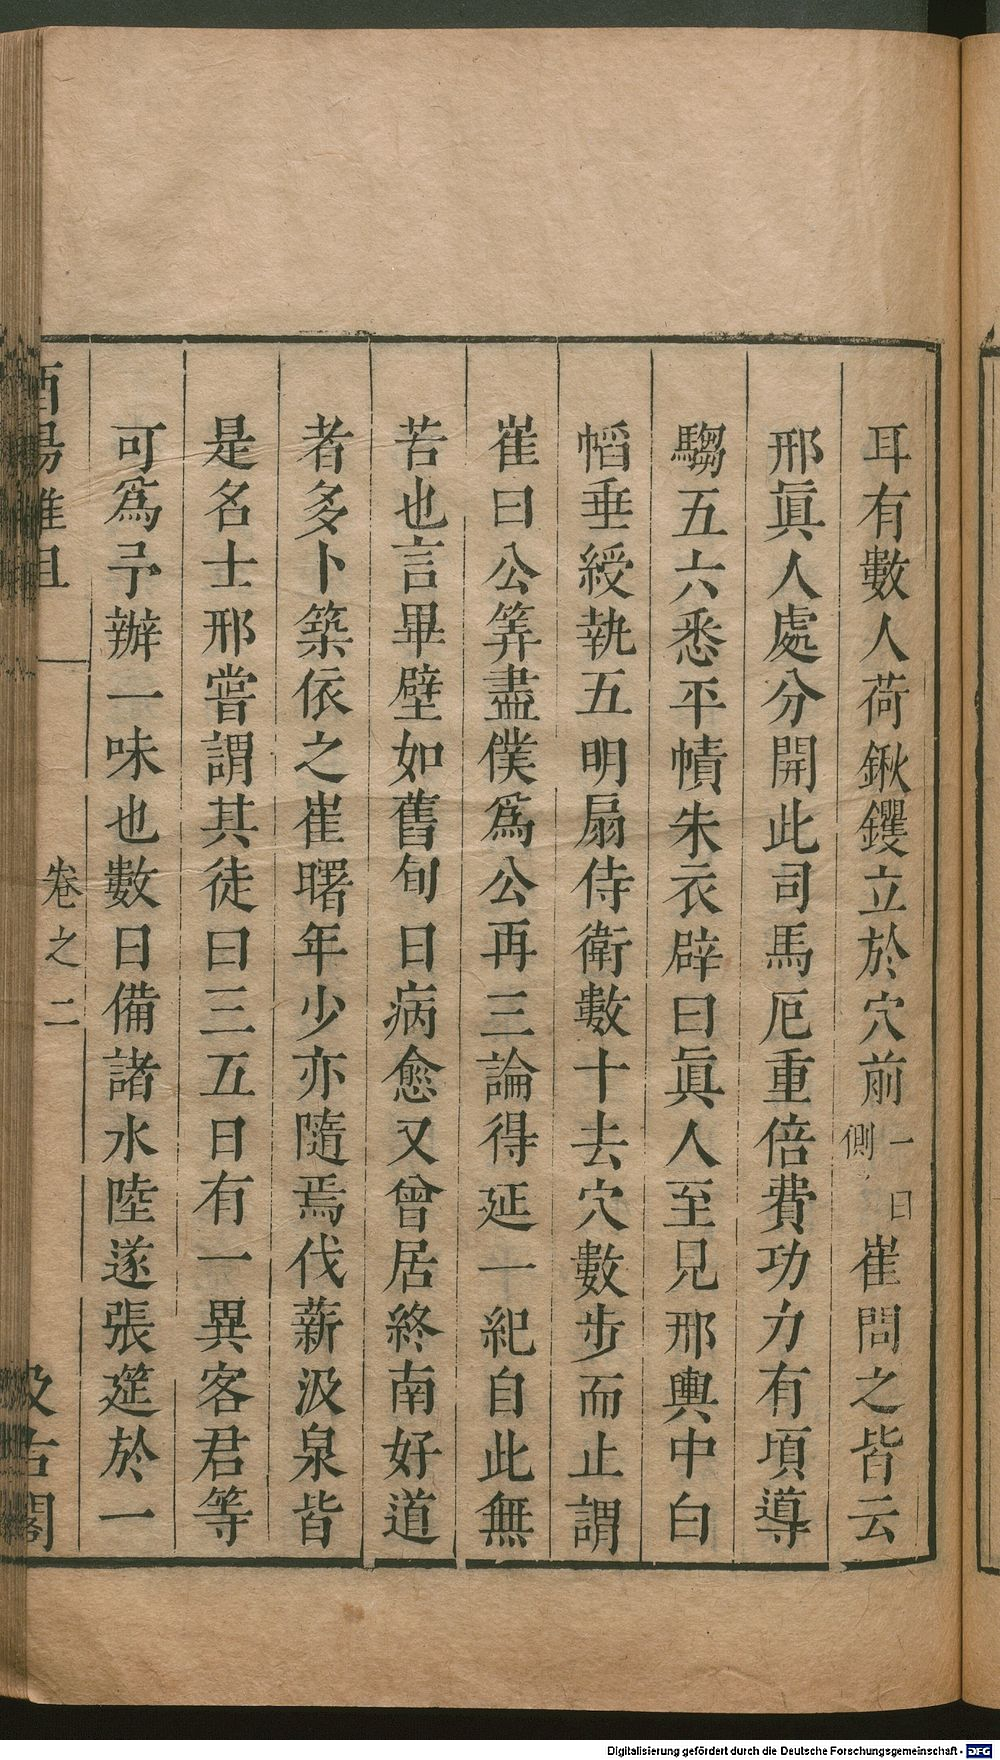 耳有數人荷鍬钁立於穴前一曰側崔問之皆云
邢眞人處分開此司馬厄重倍費功力有項導
騶五六悉平幘朱衣辟曰眞人至見邢輿中白
幍垂綬執五明扇侍衛數十去穴數步而止謂
崔曰公筭盡僕爲公再三論得延一紀自此無
苦也言畢壁如舊旬日病愈又曾居終南好道
者多卜築依之崔曙年少亦隨焉伐薪汲泉皆
是名士邢嘗謂其徒曰三五日有一異客君等
可爲予辦一味也數日備諸水陸遂張筵於一
酉陽雜俎 卷之二 汲古閣
Digitalisierung gefördert durch die Deutsche Forschungsgemeinschaft - DFG